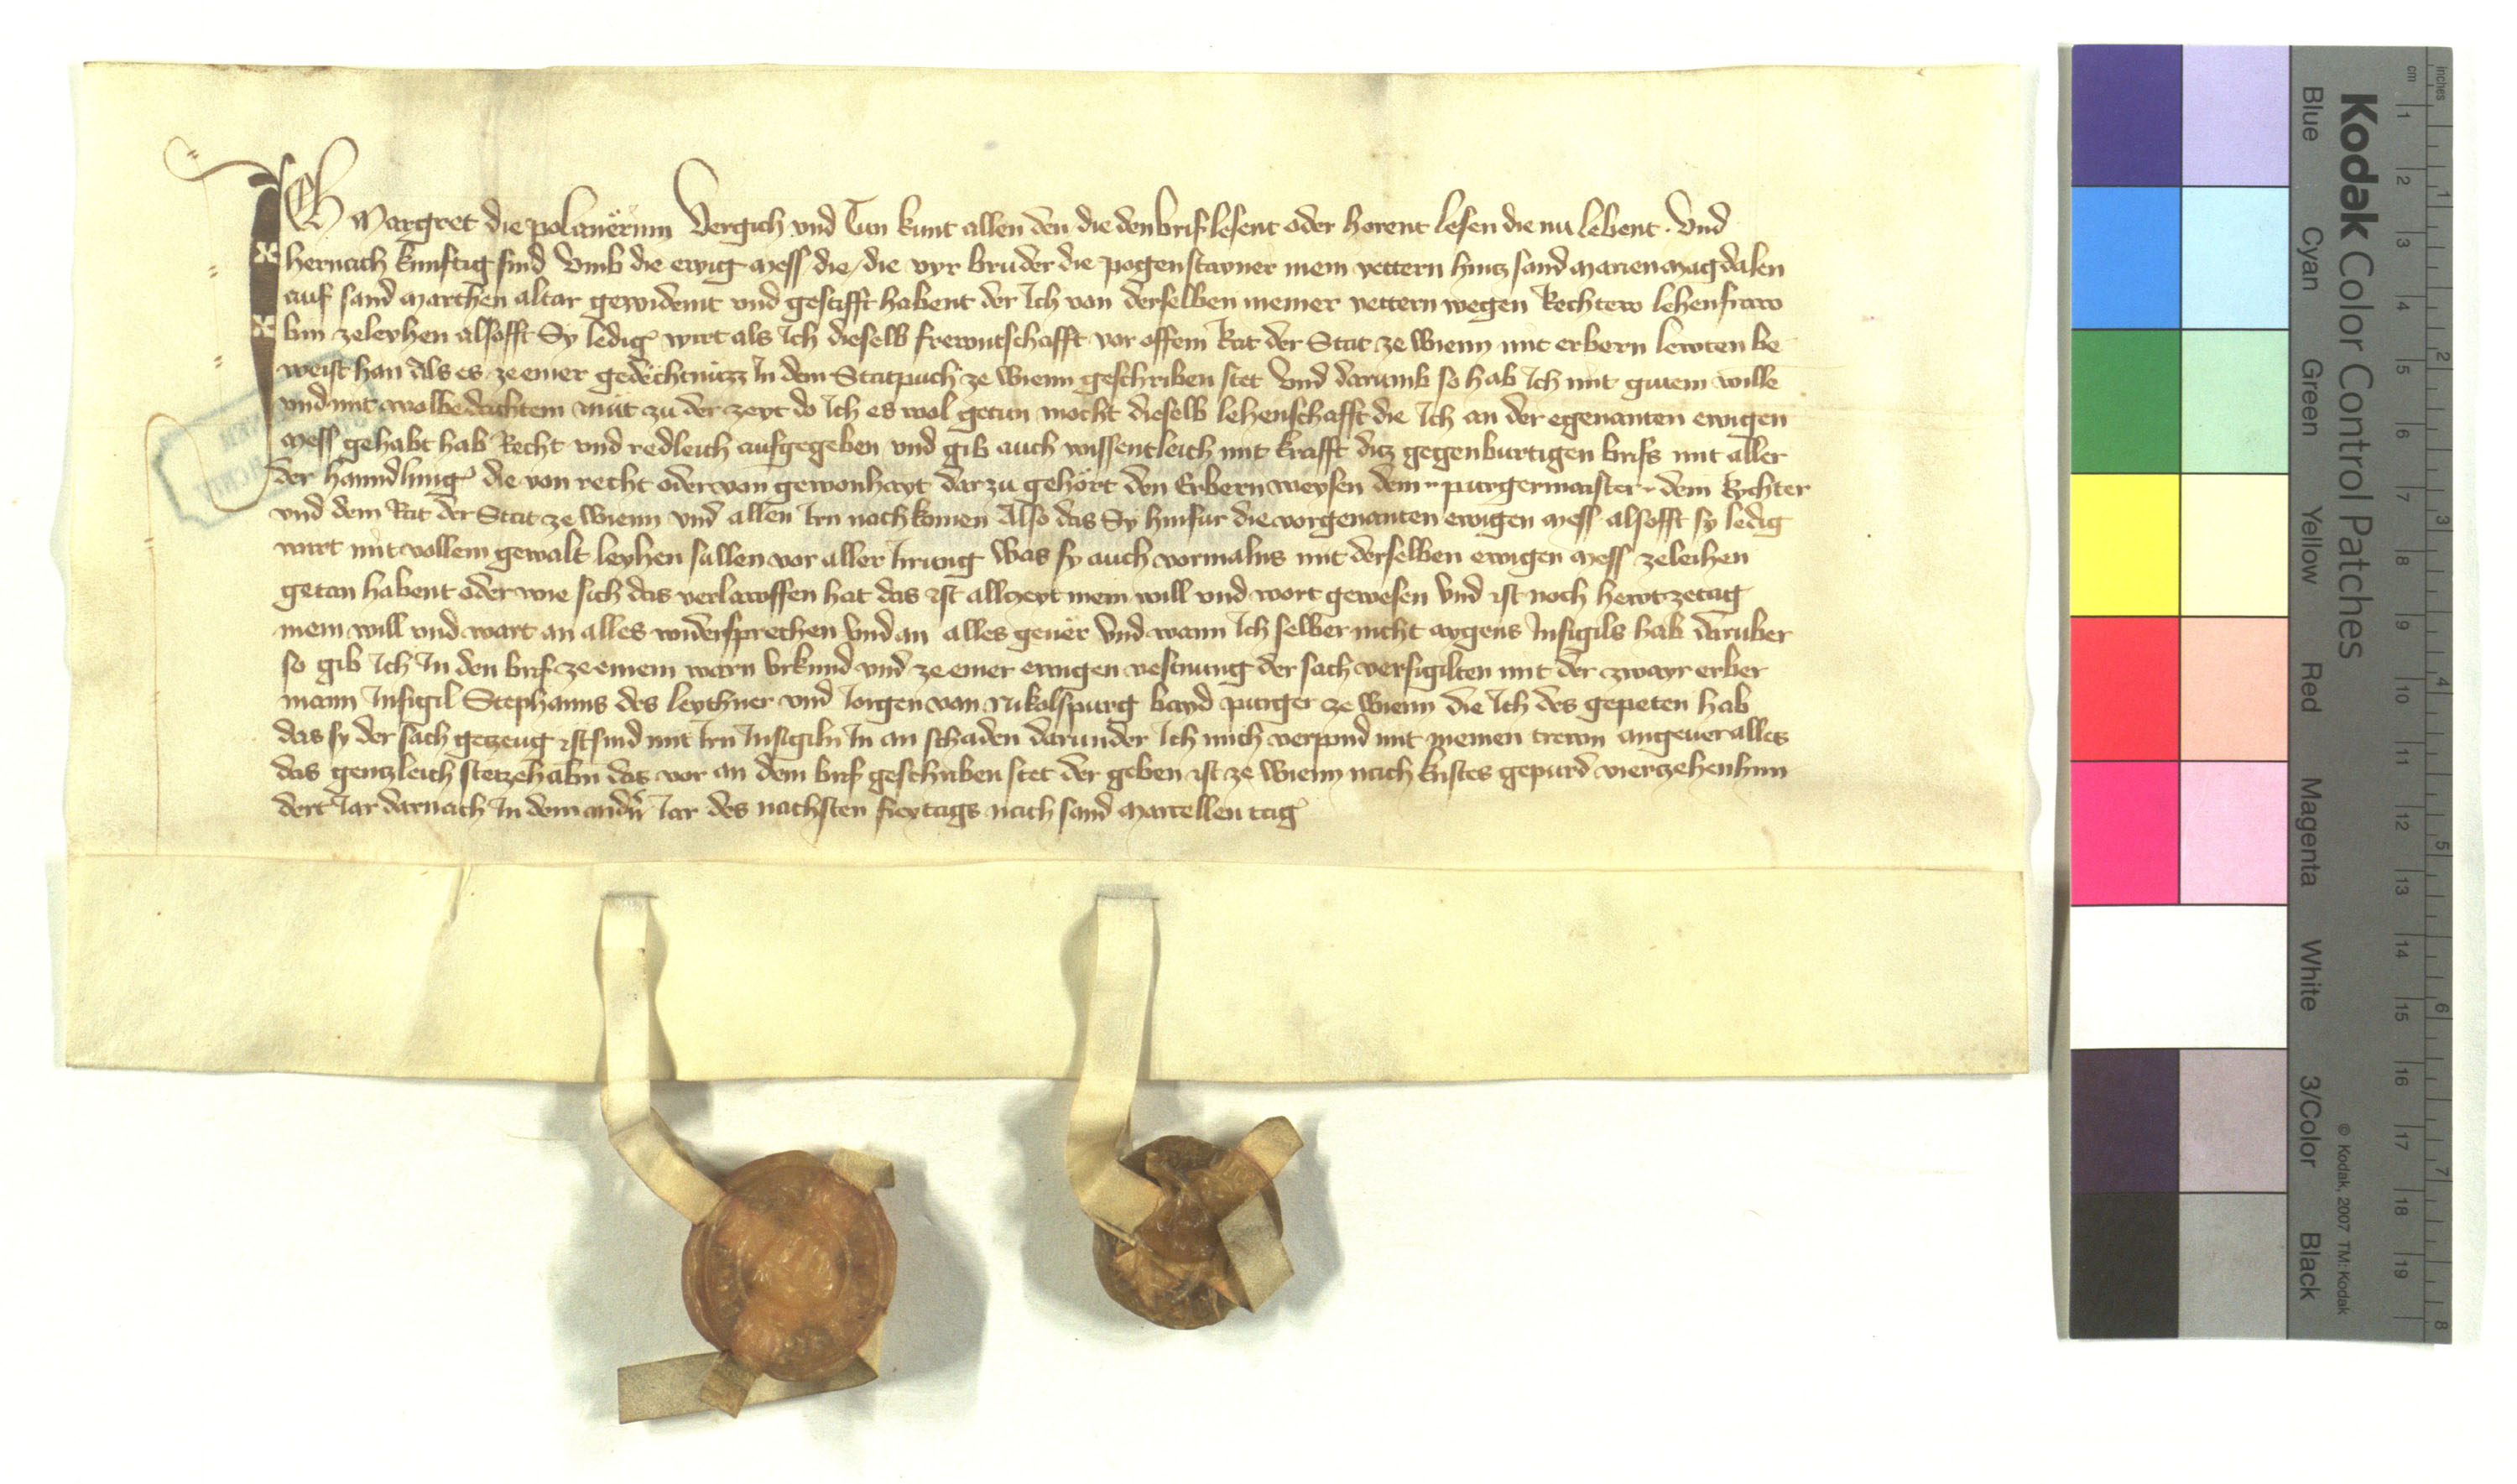 Ich Margret die polanërinn Vergich vnd Tun kunt allen den die den brif lesent oder horent lesen die nu lebent · Vnd
hernach kunftig sind Vmb die ewig mess die / die vyr bruder die pogenstayner mein vettern hincz sand marien magdalen
auf sand marthen altar gewidemt vnd gestifft habent der Ich von derselben meiner vettern wegen Rechtew lehenfraw
bin zeleyhen alsofft Sy ledig wirt als Ich dieselb frewntschafft vor offem Rat der Stat ze wienn mit erbern lewten be
weist han Als es ze einer gedëchtnüzz In dem Statpuch ze wienn geschriben stet Vnd darumb so hab Ich mit gutem wille
vnd mit wolbedachtem müt zu der zeyt do Ich es wol getun mocht dieselb lehenschafft die Ich an der egenanten ewigen
mess gehabt hab Recht vnd redleich aufgegeben vnd gib auch wissentleich mit krafft dicz gegenburtigen brifs mit aller
der hanndlung die von recht oder von gewonhayt darzu gehört den Erbern weysen dem purgermaister dem Richter
vnd dem Rat der Stat ze wienn vnd allen Irn nachkomen Also das Sy hinfur die vorgenanten ewigen mess alsofft sy ledig
wirt mit vollem gewalt leyhen sullen vor aller Irrung Was sy auch vormalns mit derselben ewigen mess zeleihen
getan habent oder wie sich das verlawffen hat das ist allczeyt mein will vnd wort gewesen Vnd ist noch hewtzetag
mein will vnd wart an alles widersprechen Vnd an alles geuër Vnd wann Ich selber nicht aygens Insigils hab daruber
so gib Ich In den brif ze einem warn Vrkund vnd ze einer ewigen vestnung der sach versigilten mit der zwayr erber
mann Insigil Stephanns des leythner vnd Jorgen von Nikolspurg bayd purger ze wienn die Ich des gepeten hab
das sy der sach geczeug sind mit Irn Insigiln In an schaden darunder Ich mich verpind mit meinen trewn angeuer alles
das genczleich stet ze habn das vor an dem brif geschriben stet der geben ist ze wienn nach kristes gepurd vierczehenhun
dert Iar darnach In dem andern Iar des nachsten freytags nach sand marcellen tag
Kodak Color Control Patches
Blue Cyan Green Yellow Red Magenta White 3/Color Black
© Kodak, 2007 TM: Kodak
inches 1 2 3 4 5 6 7 8
cm 1 2 3 4 5 6 7 8 9 10 11 12 13 14 15 16 17 18 19